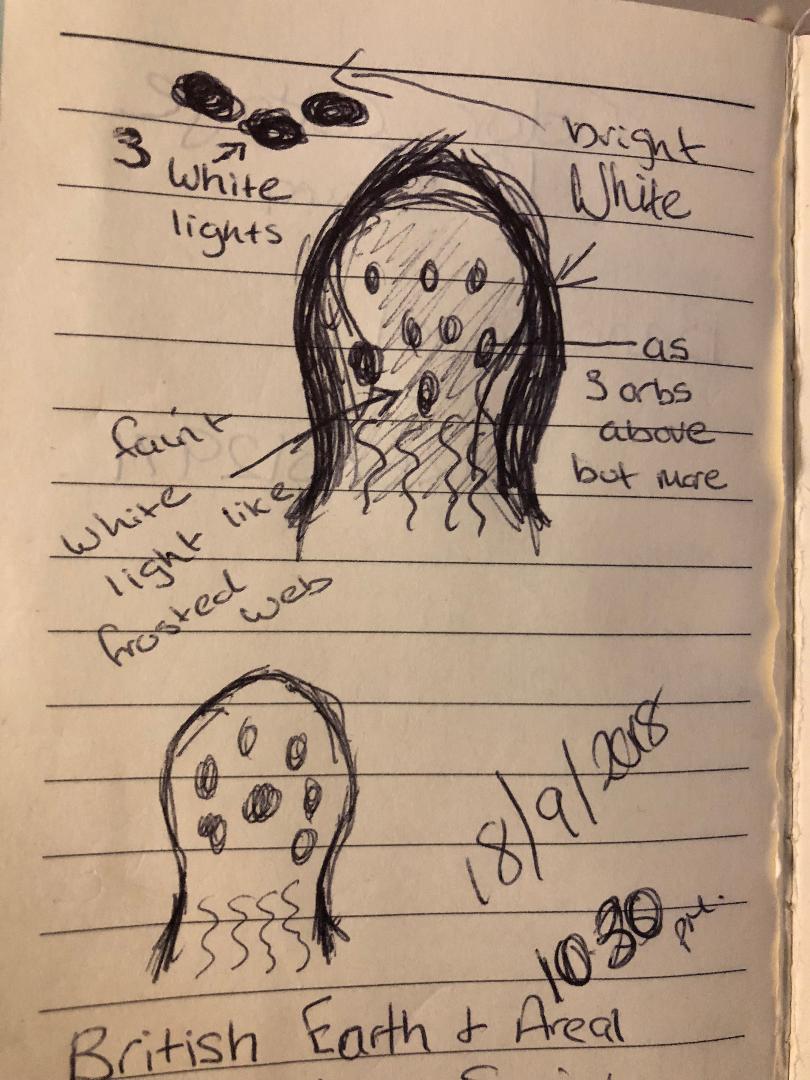 bright
White
3 White
lights
as
3 orbs
above
but more
faint
White
light like
frosted web
18/9/2018
10.30 pm.
British Earth & Areal